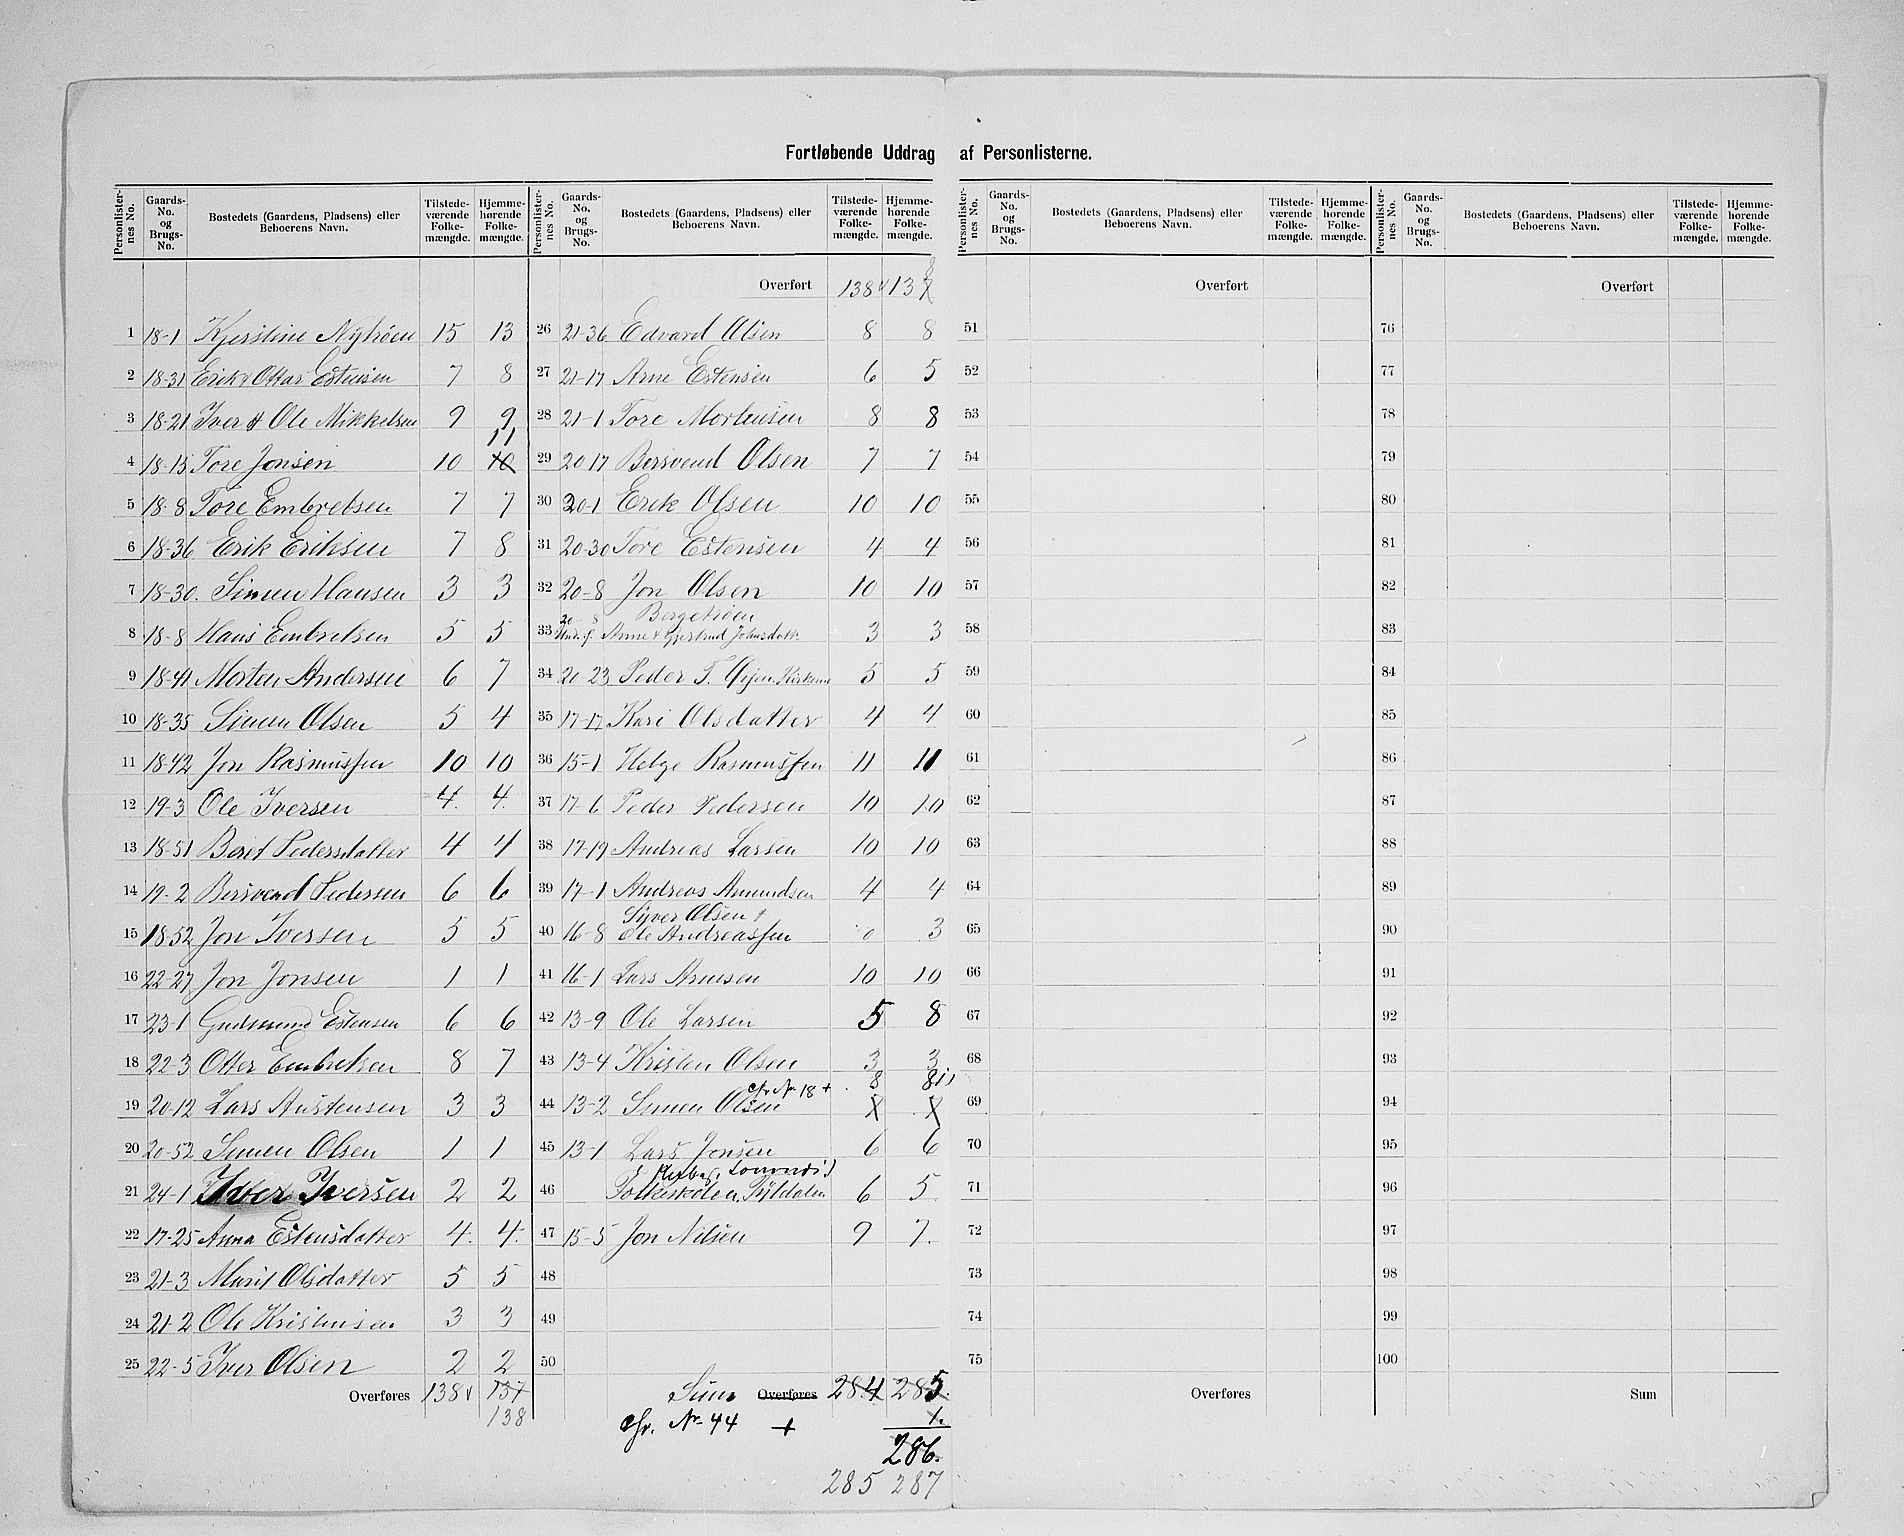 Fortløbende Uddrag af Personlisterne.
Personlister-nes No. Gaards-No. og Brugs-No. Bostedets (Gaardens, Pladsens) eller Beboerens Navn. Tilstede-værende Folke-mængde. Hjemme-hørende Folke-mængde.
Personlister-nes No. Gaards-No. og Brugs-No. Bostedets (Gaardens, Pladsens) eller Beboerens Navn. Tilstede-værende Folke-mængde. Hjemme-hørende Folke-mængde.
Personlister-nes No. Gaards-No. og Brugs-No. Bostedets (Gaardens, Pladsens) eller Beboerens Navn. Tilstede-værende Folke-mængde. Hjemme-hørende Folke-mængde.
Personlister-nes No. Gaards-No. og Brugs-No. Bostedets (Gaardens, Pladsens) eller Beboerens Navn. Tilstede-værende Folke-mængde. Hjemme-hørende Folke-mængde.
1 18-1 Kjerstine Nytrøen 15 13
2 18-31 Erik & Ottar Estensen 7 8
3 18-21 Iver & Ole Mikkelsen 9 9
11
4 18-15 Tore Jonsen 10 10
5 18-8 Tore Embretsen 7 7
6 18-36 Erik Eriksen 7 8
7 18-30. Simen Hansen 3 3
8 18-8 Hans Embretsen 5 5
9 18-41 Morten Andersen 6 7
10 18-35 Simen Olsen 5 4
11 18-42 Jon Rasmussen 10 10
12 19-3 Ole Iversen 4. 4.
13 18-51 Beret Pedersdatter 4 4
14 19-2 Bersvend Pedersen 6 6
15 18-52 Jon Iversen 5 5
16 22-27 Jon Jonsen 1 1
17 23-1 Gudmund Estensen 6 6
18 22-3 Otter Embretsen 8 7
19 20-12 Lars Austensen 3 3
20 20-52 Simen Olsen 1 1
21 24-1 Iver Iversen 2 2
22 17-25 Anna Estensdatter 4. 4.
23 21-3 Marit Olsdatter 5 5
24 21-2 Ole Kristensen 3 3
25 22-5 Iver Olsen 2 2
Overføres 138 137
138
Overført 138 13 8
26 21-36 Edvard Olsen 8 8
27 21-17 Arne Estensen 6 5
28 21-1 Tore Mortensen 8 8
29 20 17 Bersvend Olsen 7 7
30 20-1 Erik Olsen 10 10
31 20-30 Tore Estensen 4 4
32 20-8 Jon Olsen 10 10
20-8 Bergetrøen
33 Anne & Gjertrud Johnsdatt. 3 3
34 20-23 Peder T. Kirkemo 5 5
35 17-17 Kari Olsdatter 4 4
36 15-1 Helge Rasmussen 11 11
37 17-6 Peder Pedersen 10 10
38 17-19 Andreas Larsen 10 10
39 17-1 Andreas Amundsen 4 4
Syver Olsen &
40 16-8 Ole Andreassen 0 3
41 16-1 Lars Arnesen 10 10
42 13-9 Ole Larsen 5 8
43 13-4 Kristen Olsen 3 3
cfr. Nr. 18 + 8 8
44 13-2 Simen Olsen
45 13-1 Lars Jonsen 6 6
46 Folkeskolen, Tyldalen 6 5.
47 15-5 Jon Nilsen 9 7.
48
49
50
Sum Overføres 284 285.
cfr. Nr. 44 + 1.
286.
285 287
Overført
51
52
53
54
55
56
57
58
59
60
61
62
63
64
65
66
67
68
69
70
71
72
73
74
75
Overføres
Overført
76
77
78
79
80
81
82
83
84
85
86
87
88
89
90
91
92
93
94
95
96
97
98
99
100
Sum